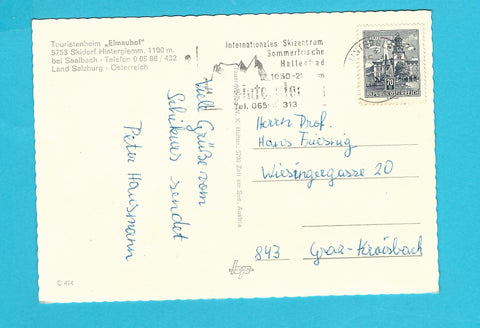 Touristenheim „Elmauhof"
5753 Skidorf Hinterglemm. 1100 m.
bei Saalbach - Telefon 0 65 86 / 432
Land Salzburg - Österreich
Internationales Skizentrum
Sommerfrische
Hallenbad
1050-2
Tel. 065 313
REPUBLIK ÖSTERREICH
70
Viele Grüße vom
Schikurs sendet
Peter Hausmann
5700 Zell am See, Austria
Herrn Prof.
Hans
Wiesingergasse 20
843 Graz-Kroisbach
C 474